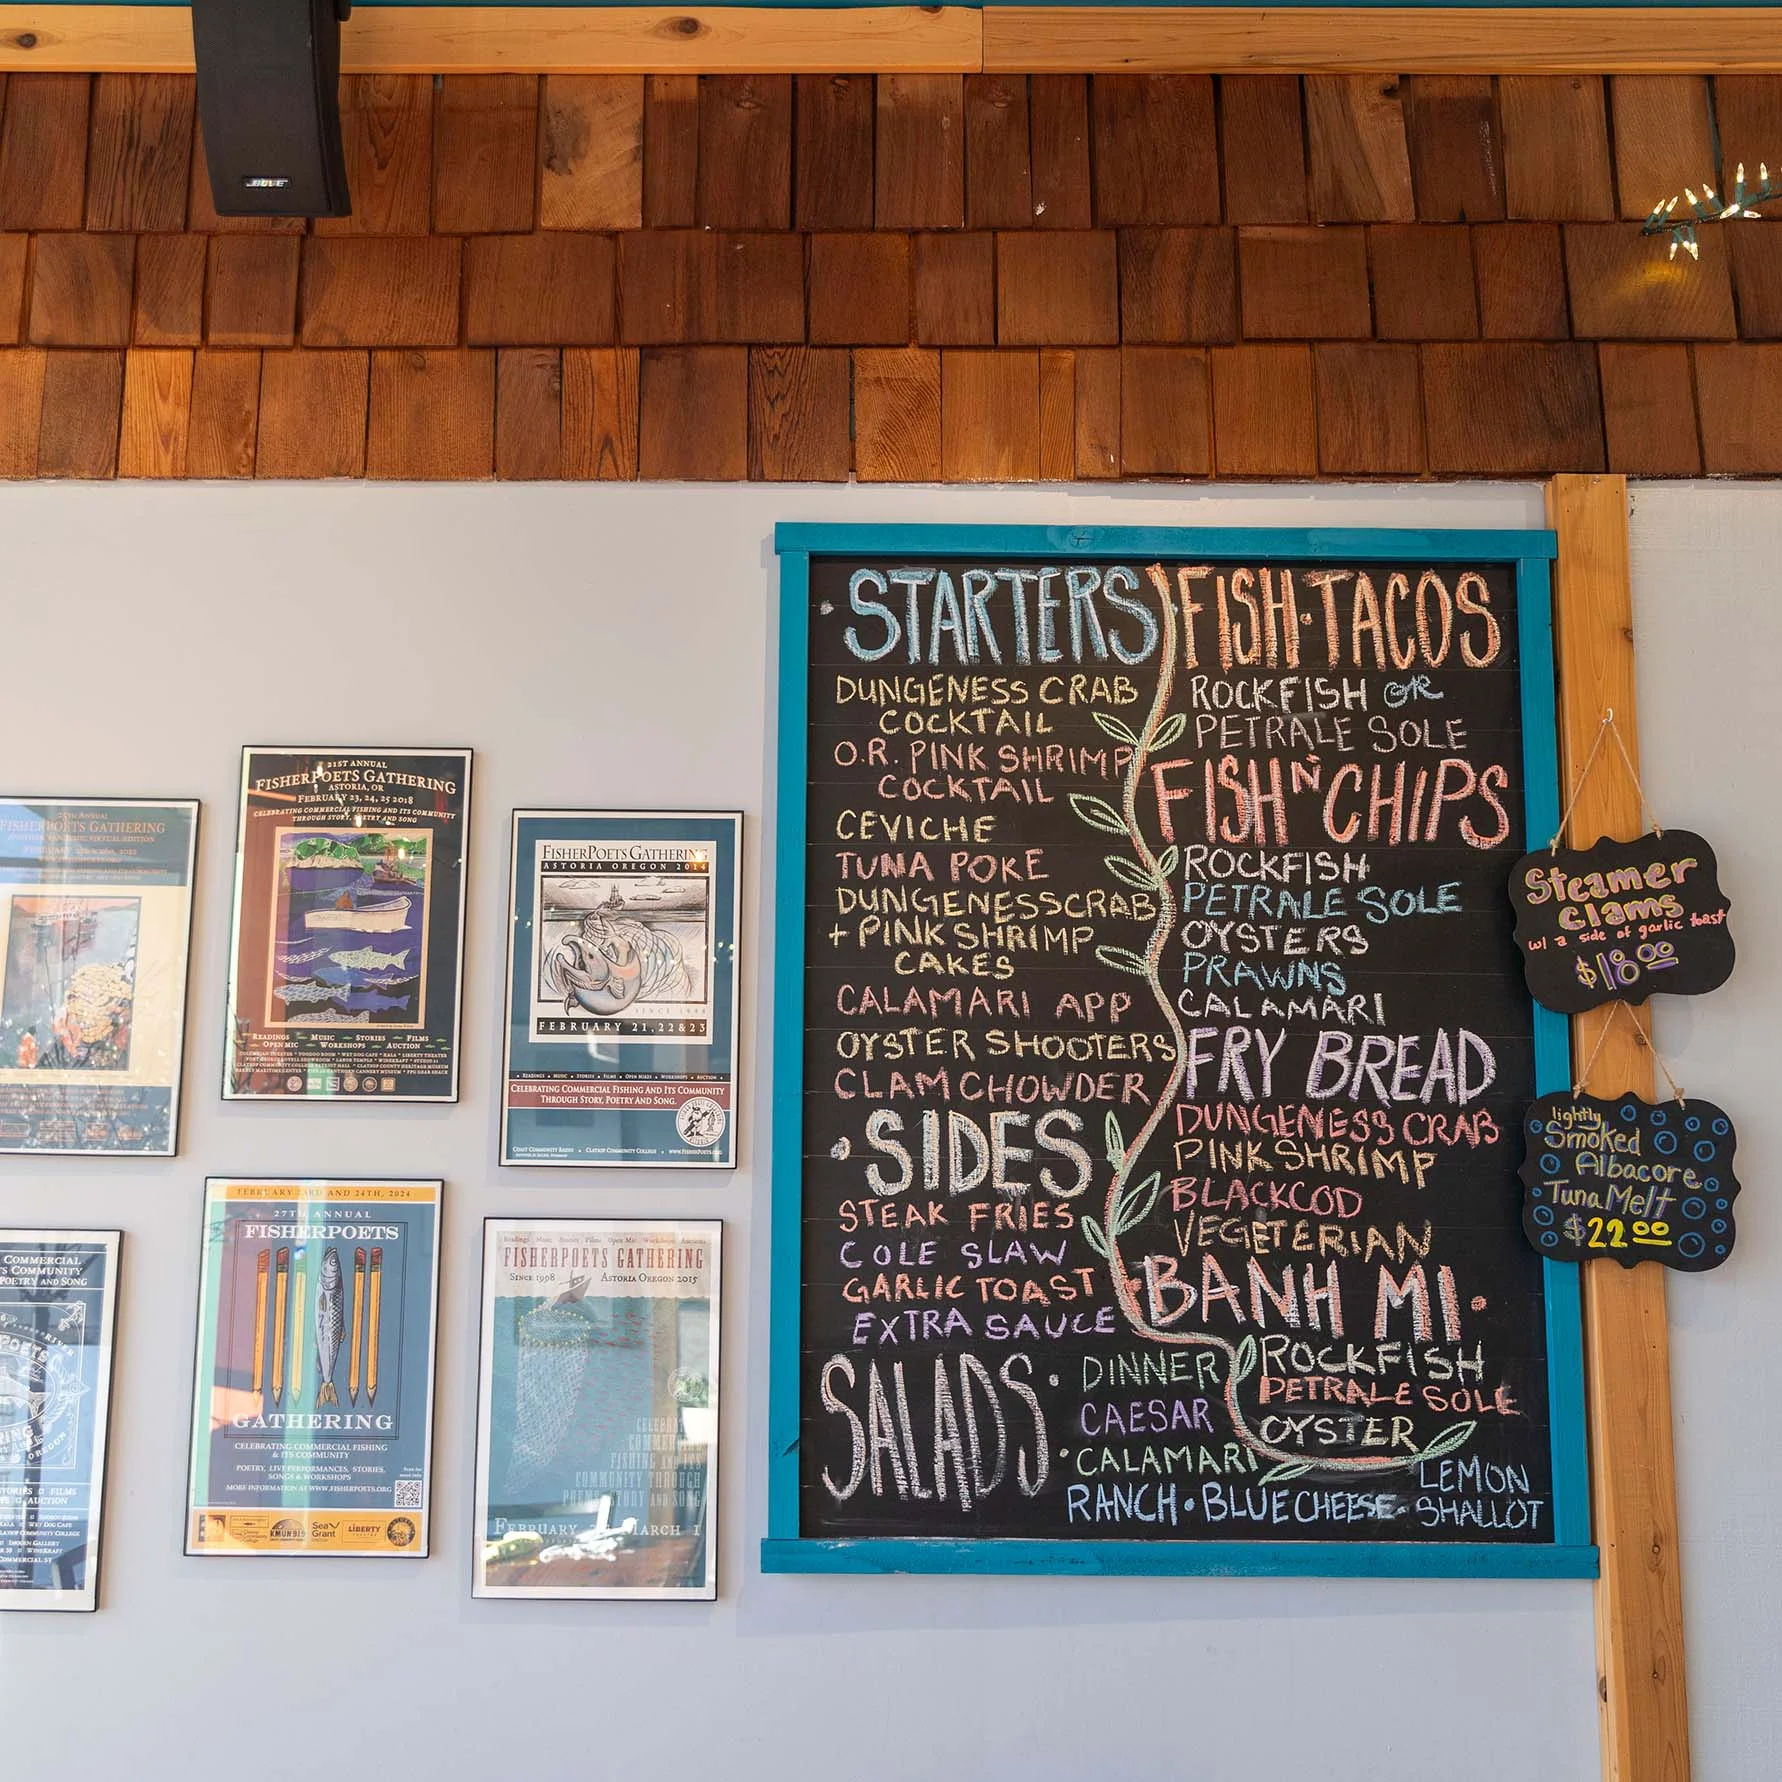 BOSE
25TH ANNUAL
FISHERPOETS GATHERING
21ST ANNUAL
FISHERPOETS GATHERING
ASTORIA, OR
FEBRUARY 23, 24, 25 2018
CELEBRATING COMMERCIAL FISHING AND ITS COMMUNITY
THROUGH STORY, POETRY AND SONG
READINGS MUSIC STORIES FILMS
OPEN MIC WORKSHOPS AUCTION
FISHERPOETS GATHERING
ASTORIA OREGON 2014
SINCE 1998
FEBRUARY 21, 22 & 23
READINGS • MUSIC • STORIES • FILMS • OPEN MIKES • WORKSHOPS • AUCTION
CELEBRATING COMMERCIAL FISHING AND ITS COMMUNITY
THROUGH STORY, POETRY AND SONG.
COAST COMMUNITY RADIO • CLATSOP COMMUNITY COLLEGE • WWW.FISHERPOETS.ORG
COMMERCIAL
S COMMUNITY
POETRY AND SONG
STORIES FILMS
AUCTION
FEBRUARY 23RD AND 24TH, 2024
27TH ANNUAL
FISHERPOETS
GATHERING
CELEBRATING COMMERCIAL FISHING
& ITS COMMUNITY
POETRY, LIVE PERFORMANCES, STORIES,
SONGS & WORKSHOPS
MORE INFORMATION AT WWW.FISHERPOETS.ORG
KMUN 91.9
Sea Grant
LIBERTY
Readings Music Stories Films Open Mic Workshops Auctions
FISHERPOETS GATHERING
SINCE 1998 ASTORIA OREGON 2015
CELEBRA
COMMERC
FISHING AND ITS
COMMUNITY THROUGH
STORY AND SONG
FEBRUARY MARCH 1
STARTERS
DUNGENESS CRAB
COCKTAIL
O.R. PINK SHRIMP
COCKTAIL
CEVICHE
TUNA POKE
DUNGENESS CRAB
+ PINK SHRIMP
CAKES
CALAMARI APP
OYSTER SHOOTERS
CLAM CHOWDER
• SIDES
STEAK FRIES
COLE SLAW
GARLIC TOAST
EXTRA SAUCE
SALADS •
DINNER
CAESAR
• CALAMARI
RANCH • BLUE CHEESE •
LEMON
SHALLOT
FISH • TACOS
ROCKFISH OR
PETRALE SOLE
FISH N CHIPS
ROCKFISH
PETRALE SOLE
OYSTERS
PRAWNS
CALAMARI
FRY BREAD
DUNGENESS CRAB
PINK SHRIMP
BLACKCOD
VEGETERIAN
BANH MI •
ROCKFISH
PETRALE SOLE
OYSTER
Steamer
Clams
w/ a side of garlic toast
$18.00
lightly
Smoked
Albacore
Tuna Melt
$22.00